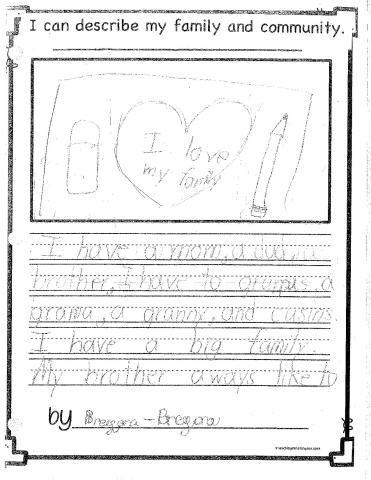 I can describe my family and community.
I love
my family
I have a mom, a dad, a
brother, I have to grampus, a
grama, a granny, and cusins.
I have a big family.
My brother aways like to
by